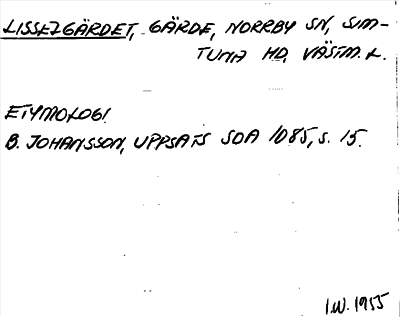 LISSELGÄRDET, GÄRDE, NORRBY SN, SIM-
TUNA HD, VÄSTM. L.
ETYMOLOGI
B. JOHANSSON, UPPSATS SOA 1085, S. 15.
I.W. 1955